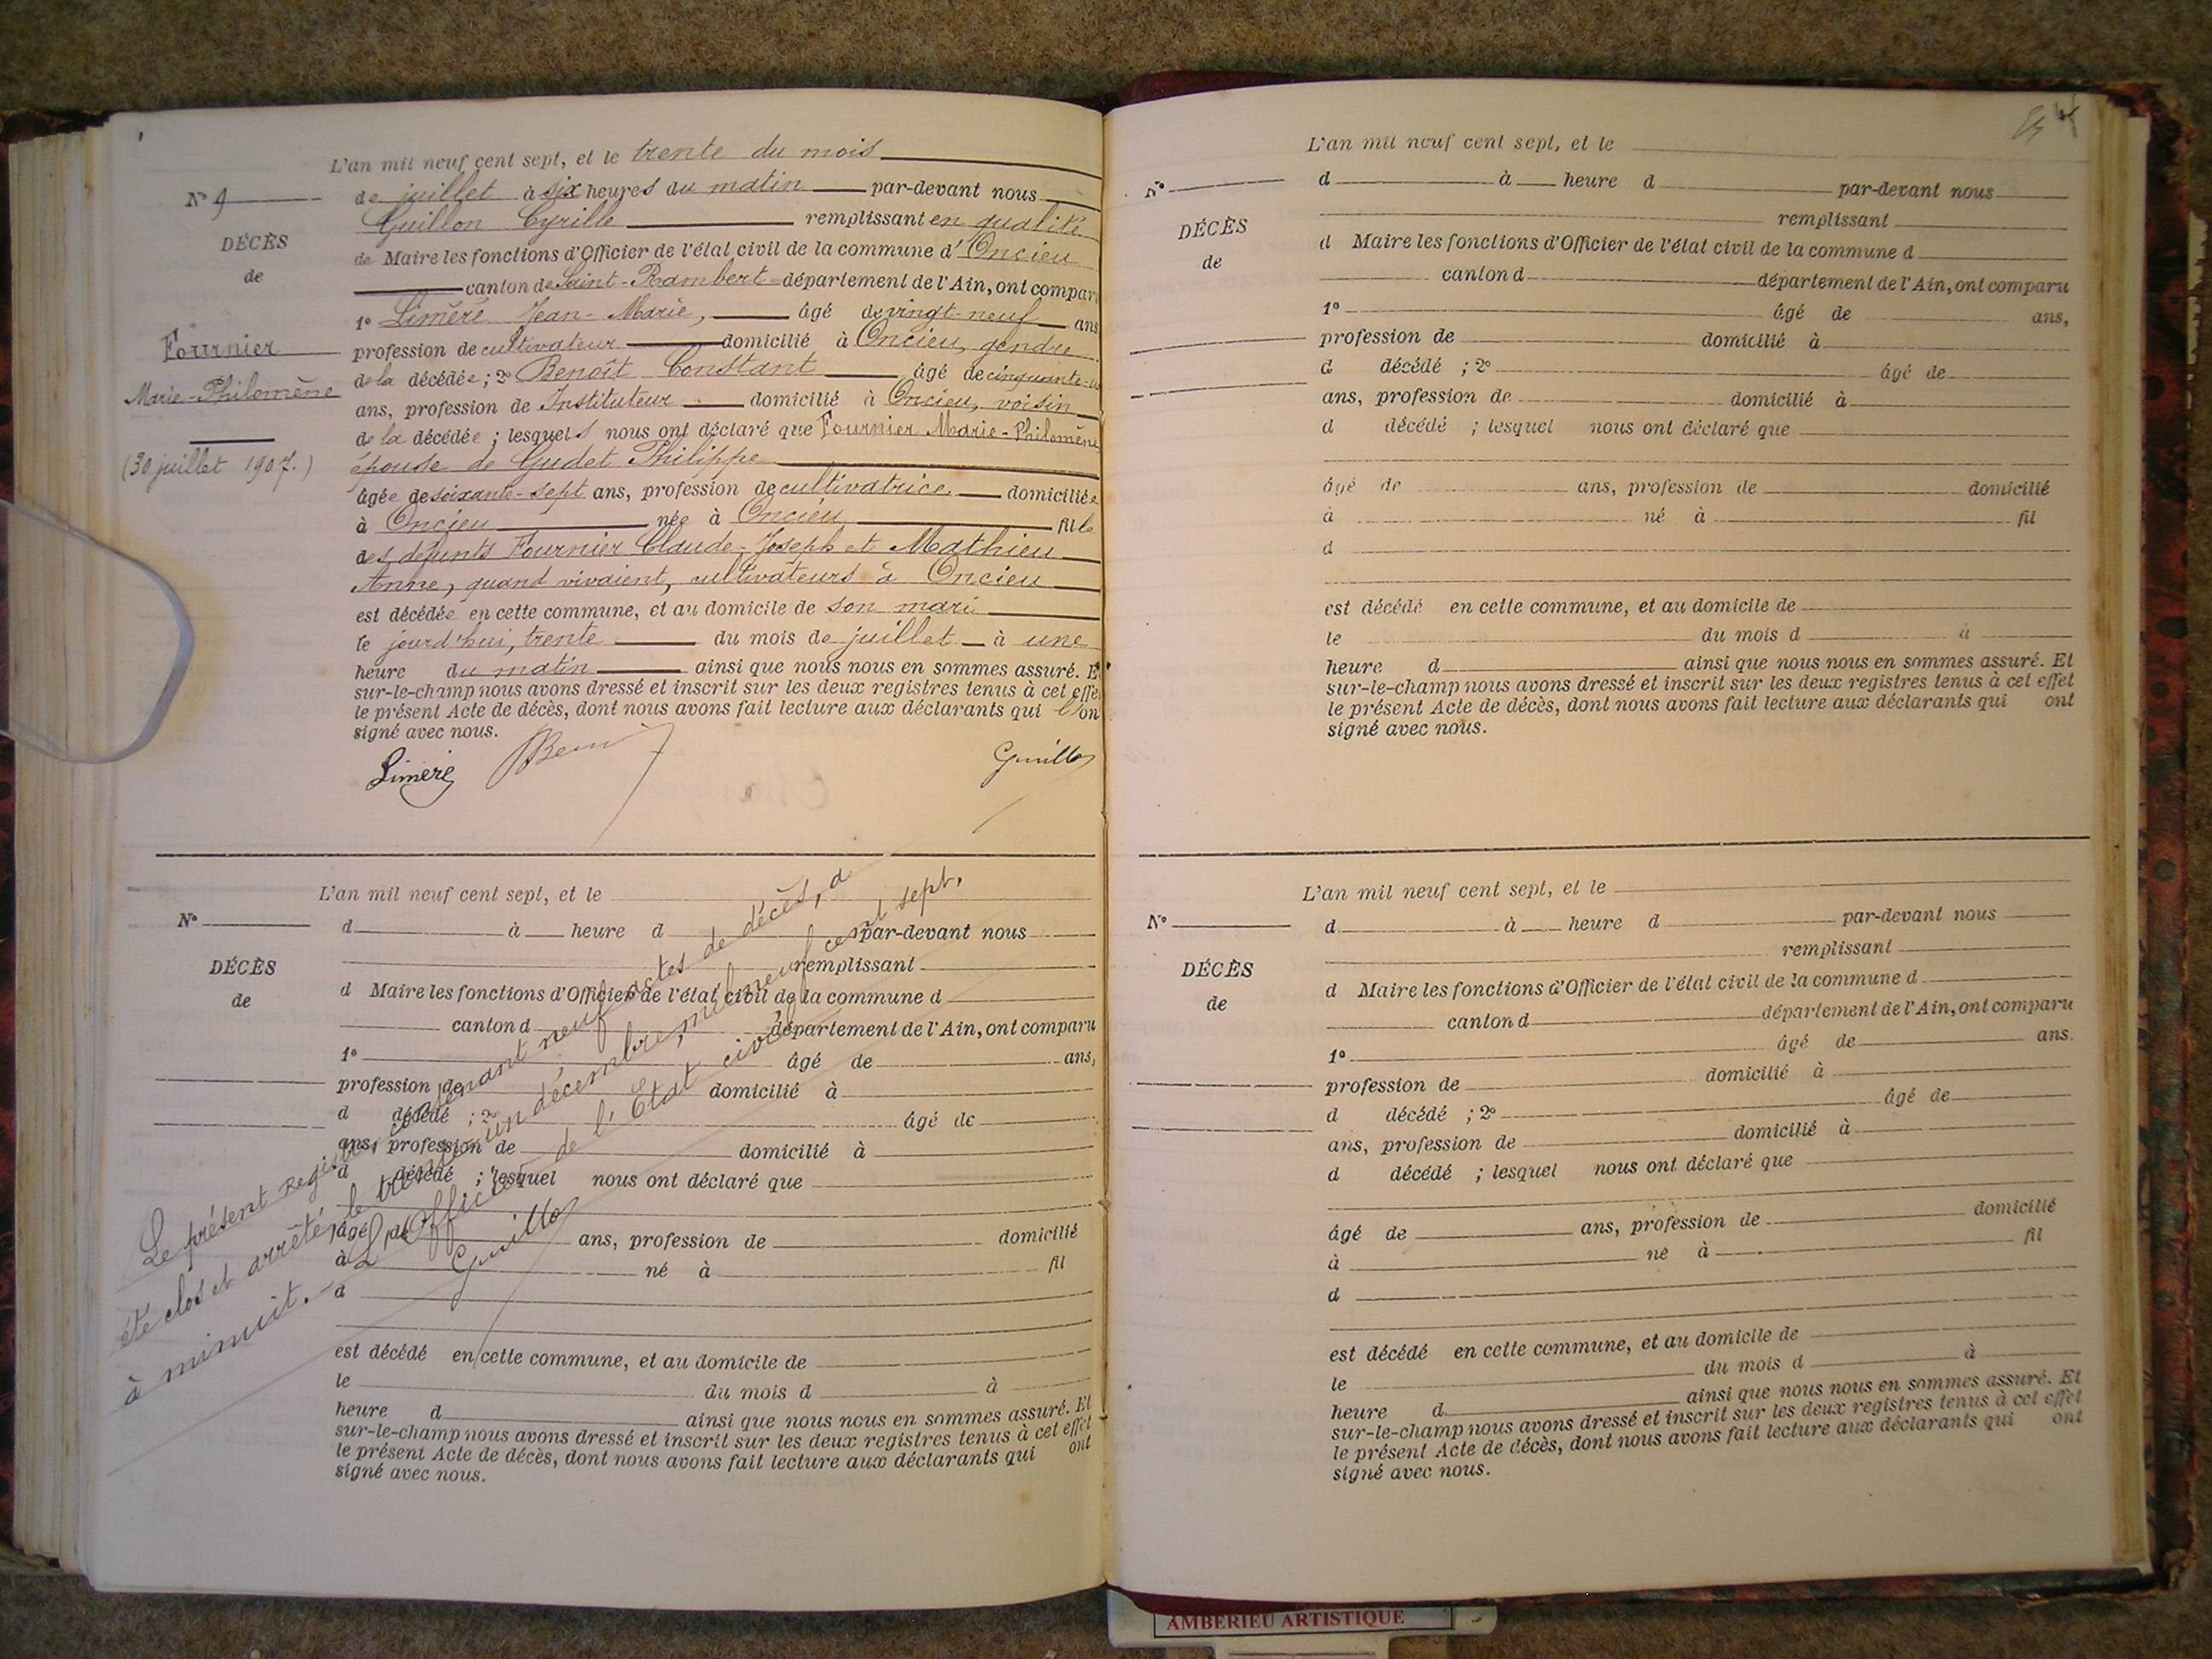 L'an mil neuf cent sept, et le trente du mois
N° 9
de juillet à six heures du matin par-devant nous
Guillon Cyrille remplissant en qualité
DÉCÈS
de Maire les fonctions d'Officier de l'état civil de la commune d'Oncieu
de
canton de Saint-Rambert département de l'Ain, ont compar
1° Liméré Jean-Marie, âgé de vingt-neuf ans
Fournier
profession de cultivateur domicilié à Oncieu, gendre
Marie-Philomène
de la décédée ; 2° Benoît Constant âgé de cinquante-
ans, profession de Instituteur domicilié à Oncieu, voisin
de la décédée ; lesquels nous ont déclaré que Fournier Marie-Philomène
(30 juillet 1907.)
épouse de Gudet Philippe
âgée de soixante-sept ans, profession de cultivatrice domiciliée
à Oncieu née à Oncieu fille
des défunts Fournier Claude-Joseph et Mathieu
Anne, quand vivaient, cultivateurs à Oncieu
est décédée en cette commune, et au domicile de son mari
le jourd'hui, trente du mois de juillet à une
heure du matin ainsi que nous nous en sommes assuré. E
sur-le-champ nous avons dressé et inscrit sur les deux registres tenus à cet effe
le présent Acte de décès, dont nous avons fait lecture aux déclarants qui l'on
signé avec nous.
Liméré Guillon
L'an mil neuf cent sept, et le
N°
d à heure d par-devant nous
remplissant
DÉCÈS
d Maire les fonctions d'Officier de l'état civil de la commune d
de
canton d département de l'Ain, ont comparu
1° âgé de ans,
profession de domicilié à
d décédé ; 2° âgé de
ans, profession de domicilié à
d décédé ; lesquel nous ont déclaré que
âgé de ans, profession de domicilié
à né à fil
d
est décédé en cette commune, et au domicile de
le du mois d à
heure d ainsi que nous nous en sommes assuré. Et
sur-le-champ nous avons dressé et inscrit sur les deux registres tenus à cet effet
le présent Acte de décès, dont nous avons fait lecture aux déclarants qui ont
signé avec nous.
Le présent Registre, contenant neuf actes de décès, a
été clos et arrêté, le trente-un décembre, mil neuf cent sept,
à minuit. - L'Officier de l'État civil
Guillon
L'an mil neuf cent sept, et le
N°
d à heure d par-devant nous
remplissant
DÉCÈS
d Maire les fonctions d'Officier de l'état civil de la commune d
de
canton d département de l'Ain, ont comparu
1° âgé de ans,
profession de domicilié à
d décédé ; 2° âgé de
ans, profession de domicilié à
d décédé ; lesquel nous ont déclaré que
âgé de ans, profession de domicilié
à né à fil
d
est décédé en cette commune, et au domicile de
le du mois d à
heure d ainsi que nous nous en sommes assuré. Et
sur-le-champ nous avons dressé et inscrit sur les deux registres tenus à cet effet
le présent Acte de décès, dont nous avons fait lecture aux déclarants qui ont
signé avec nous.
L'an mil neuf cent sept, et le
N°
d à heure d par-devant nous
remplissant
DÉCÈS
d Maire les fonctions d'Officier de l'état civil de la commune d
de
canton d département de l'Ain, ont comparu
1° âgé de ans.
profession de domicilié à
d décédé ; 2° âgé de
ans, profession de domicilié à
d décédé ; lesquel nous ont déclaré que
âgé de ans, profession de domicilié
à né à fil
d
est décédé en cette commune, et au domicile de
le du mois d à
heure d ainsi que nous nous en sommes assuré. Et
sur-le-champ nous avons dressé et inscrit sur les deux registres tenus à cet effet
le présent Acte de décès, dont nous avons fait lecture aux déclarants qui ont
signé avec nous.
AMBERIEU ARTISTIQUE